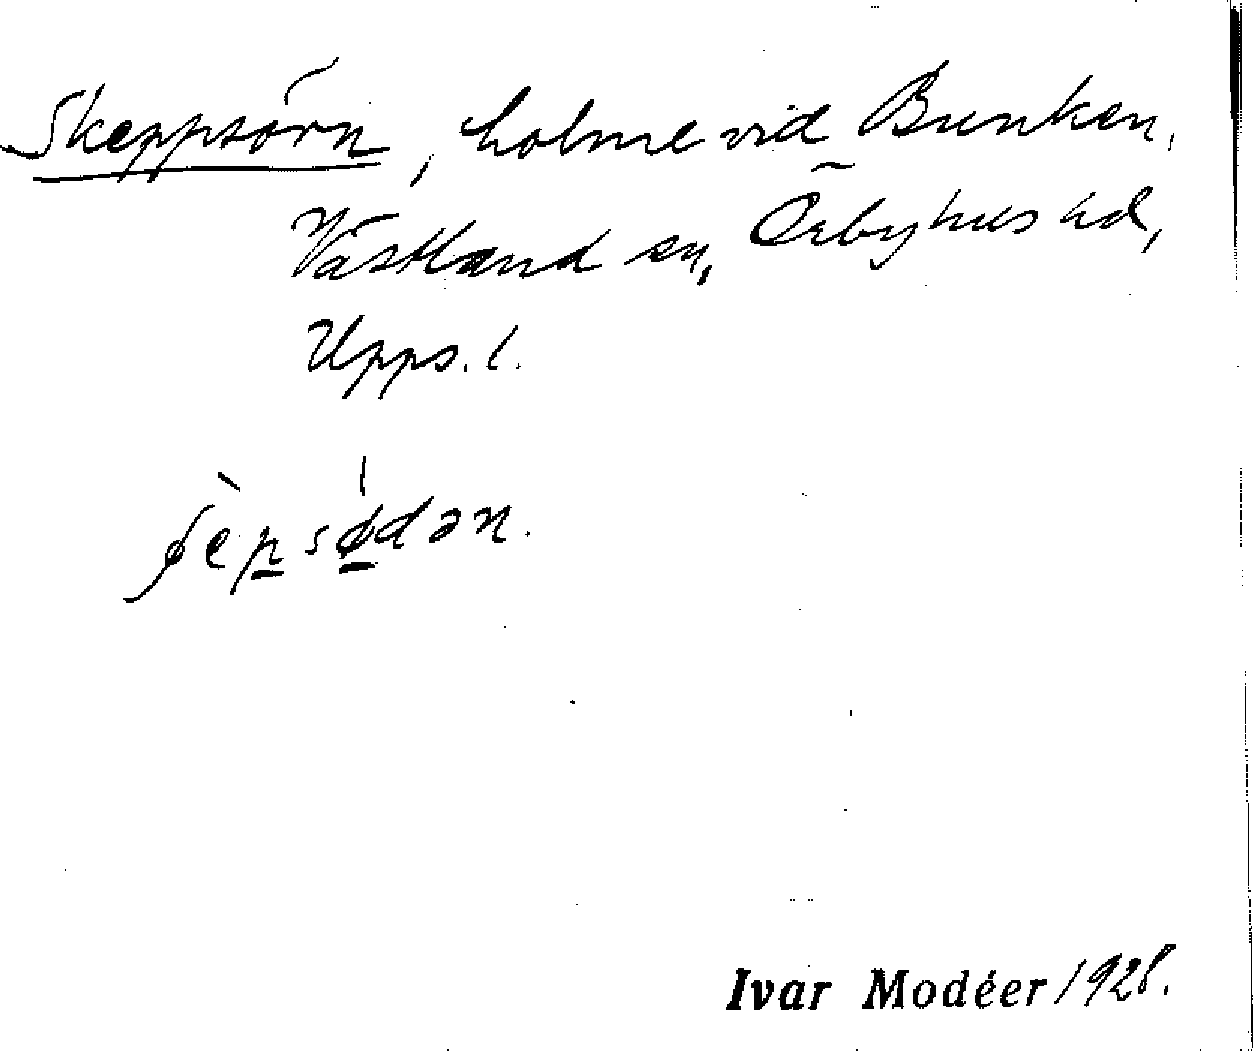 Skeppsörn, holme vid Bunken,
Västland sn, Örbyhus hd,
Upps. l.
Ivar Modéer 1928.